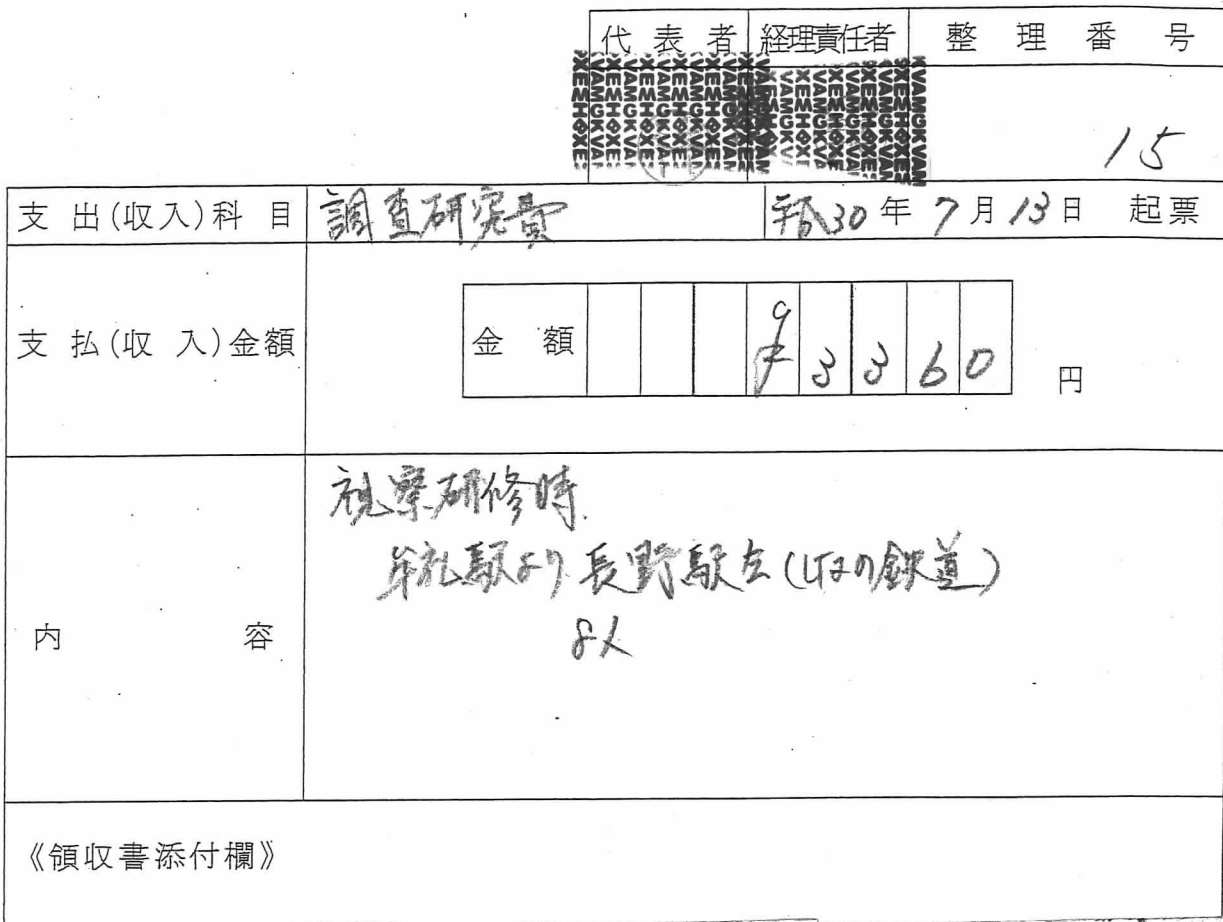 代表者 経理責任者 整理番号
15
支出(収入)科目 調査研究費 平成30年7月13日 起票
支払(収入)金額 金額 ¥3360 円
視察研修時
牟礼駅より長野駅迄(しなの鉄道)
内容 8人
《領収書添付欄》